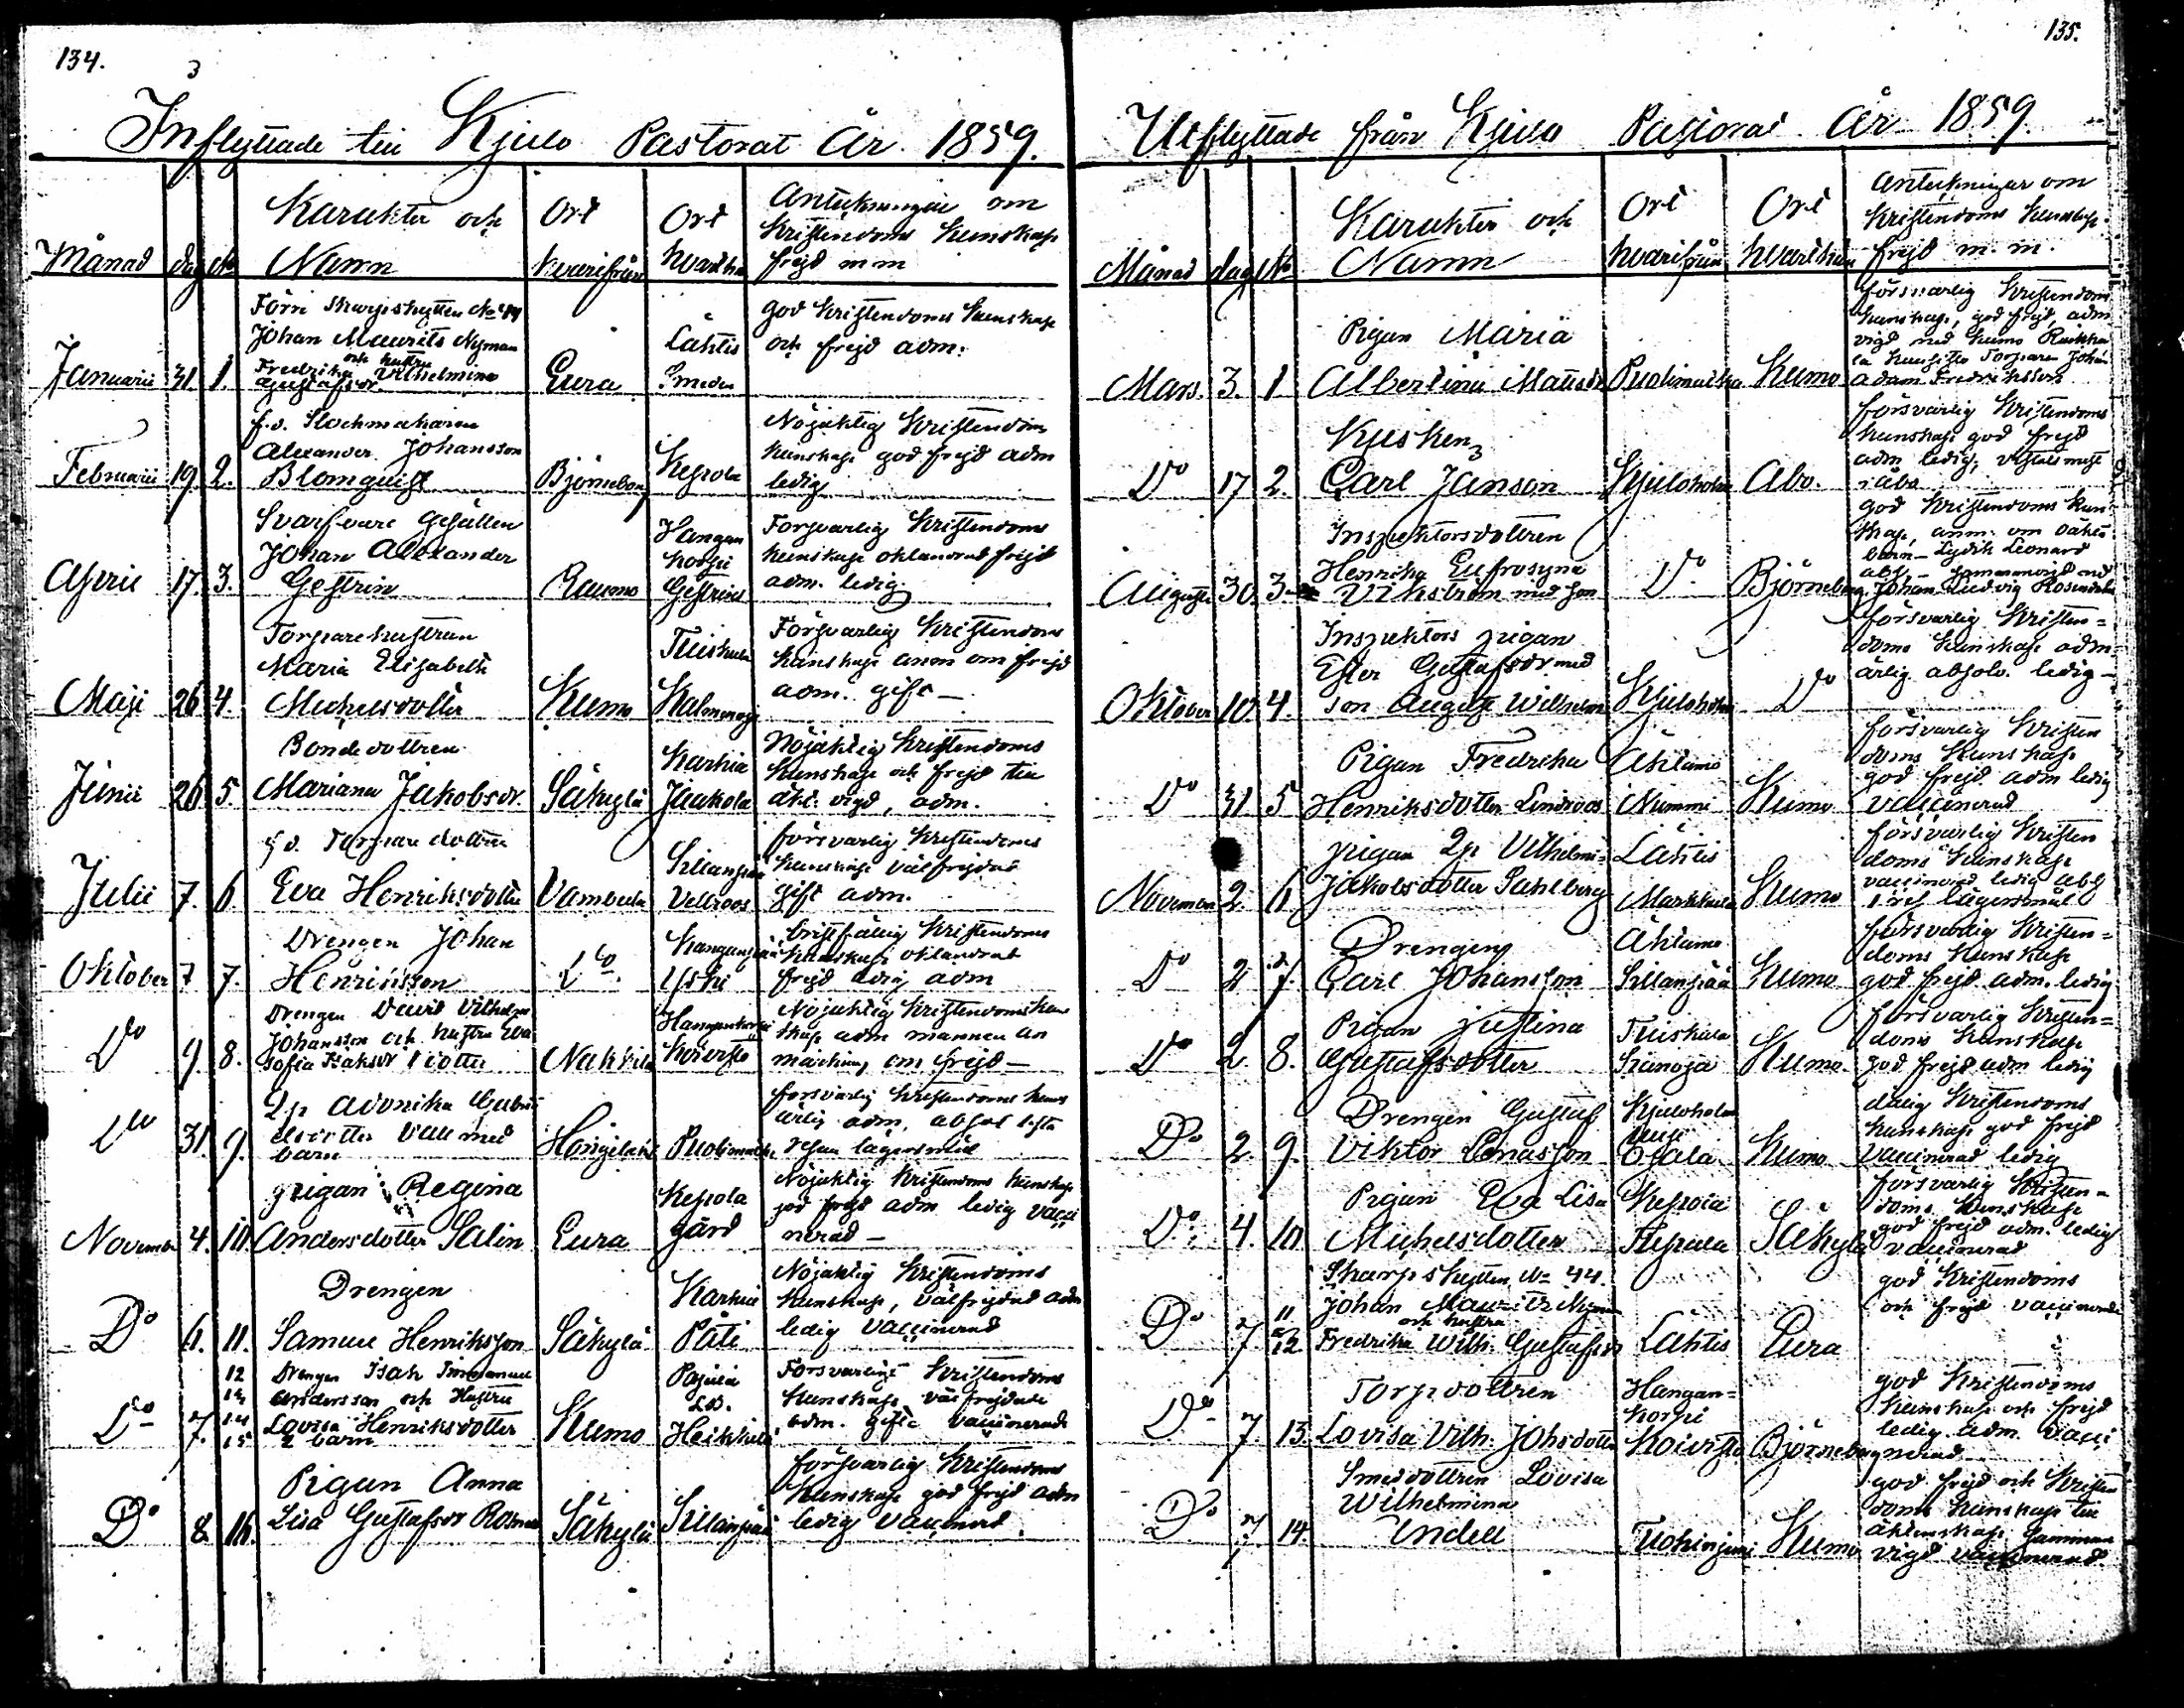 134.
3
Inflyttade till Kjulo Pastorat År 1859.
Månad dag No Karakter och Namn Ort hvarifrån Ort hvarthän Anteckningar om Kristendoms kunskap frejd m m
Förre Skarpskytten No 44
Johan Maurits Nyman
och hustru
Fredrika Vilhelmina
Gustafsdr
Januarii 31 1. Eura Lähtis Smeden
god Kristendoms kunskap
och frejd adm.
f.d. Klockmakaren
Alexander Johansson
Februarii 19. 2. Blomquist Björneborg Kepola
Nöjaktig Kristendoms
kunskap god frejd adm
ledig
Svarfvare Gesällen
Johan Alexander
April 17. 3. Gestrin Raumo
Hangan
korpi
Gestrins
Försvarlig Kristendoms
kunskap oklandrad frejd
adm. ledig
Torparehustrun
Maria Elisabeth
Maji 26 4. Michelsdotter Kumo
Försvarlig Kristendoms
kunskap anm om frejd
adm. gift
Bondedottren
Junii 26 5. Mariana Jakobsdr. Säkylä
Karhia
Jaakola
Nöjaktig Kristendoms
kunskap och frejd till
äkt. vigd, adm.
f d. Torpare dottren
Julii 7. 6. Eva Henriksdotter Vambula
Sillanpää
försvarlig Kristendoms
kunskap välfrejdad
gift adm.
Drengen Johan
Oktober 7 7. Henriksson Do
Yski
bristfällig Kristendoms
kunskap oklandrad
frejd ledig adm
Drengen David Vilhelm
Johansson och hustru Eva
Do 9. 8. Sofia Isaksdotter Nakkila
Hangankorpi
Koivisto
Nöjaktig Kristendoms kun
skap adm mannen an
märkning om frejd
Do 31. 9. med
barn Honkilaks Puolimatka
försvarlig Kristendoms kunskap
ärlig adm. absol 1sta
resan lägersmål
pigan Regina
November 4. 10 Andersdotter Salin Eura
Kepola
gård
Nöjaktig Kristendoms kunskap
god frejd adm ledig vacci
nerad
Drengen
Do 6. 11. Samuel Henriksson Säkylä
Karhia
Pati
Nöjaktig Kristendoms
kunskap, välfrejdad adm
ledig vaccinerad
12 Drengen Isak Immanuel
13 Andersson och Hustru
Do 7. 14 Lovisa Henriksdotter
15 2 barn Kumo
Pajula
Heikkilä
Försvarlig Kristendoms
kunskap välfrejdade
adm. gifte vaccinerade
Pigan Anna
Do 8 16. Lisa Gustafsdr Säkylä Sillanpää
försvarlig Kristendoms
kunskap god frejd adm
ledig vaccinerad.
135.
Utflyttade från Kjulo Pastorat År 1859.
Månad dag No Karakter och Namn Ort hvarifrån Ort hvarthän Anteckningar om Kristendoms kunskap frejd m. m.
Pigan Maria
Mars. 3. 1 Albertina Matsdr Puolimatka Kumo
försvarlig Kristendoms
kunskap, god frejd, adm
vigd med Kumo
Torparen Johan
Adam Fredriksson
Kusken
Do 17 2. Carl Janson Kjuloholm Åbo.
försvarlig Kristendoms
kunskap god frejd
adm ledig,
i åbo
Inspektorsdottren
Henrika Eufrosyna
Augusti 30. 3 Vikström med son Do Björneborg
god Kristendoms kun
skap, anm. om oäkta
barn Leonard
Johan Ludvig
Inspektors pigan
Ester Gustafsdr med
Oktober 10. 4. son August Wilhelm Kjuloholm Do
försvarlig Kristen=
doms kunskap adm
ärlig absolv. ledig
Pigan Fredrika
Do 31 5 Henriksdotter Lindroos
Ählumo
Nummi Kumo
försvarlig Kristen
doms kunskap
god frejd adm ledig
vaccinerad
pigan Vilhelmi-
November 2. 6 Jakobsdotter Sahlberg
Lähtis
Markkula Kumo
försvarlig Kristen
doms kunskap
vaccinerad ledig abs
1 res lägersmål
Drengen
Do 2 7. Carl Johansson
Ählumo
Sillanpää Kumo
försvarlig Kristen=
doms kunskap
god frejd adm. ledig
Pigan Justina
Do 2. 8. Gustafsdotter
Tuiskula
Kumo.
försvarlig Kristen=
doms kunskap
god frejd adm ledig
Drengen Gustaf
Do 2. 9. Viktor Enasson
Kjuloholm
Ojala Kumo
dålig Kristendoms
kunskap god frejd
vaccinerad ledig
Pigan Eva Lisa
Do. 4. 10 Michelsdotter
Kepola
Säkylä
försvarlig Kristen-
doms kunskap
god frejd adm. ledig
vaccinerad
Skarpskytten No 44.
11 Johan Maurits Nyman
och hustru
Do 7. 12 Fredrika Wilh. Gustafsdr Lähtis Eura
god Kristendoms
och frejd vaccinerade
Torpdottren
Do 7. 13. Lovisa Vilh. Johsdotter
Hangan=
korpi
Koivisto Björneborg
god Kristendoms
kunskap och frejd
ledig adm. vacci
nerad
Smeddottren Lovisa
Wilhelmina
Do 7 14. Indell Kumo
god frejd och Kristen
doms kunskap till
äktenskap samman
vigd vaccinerad